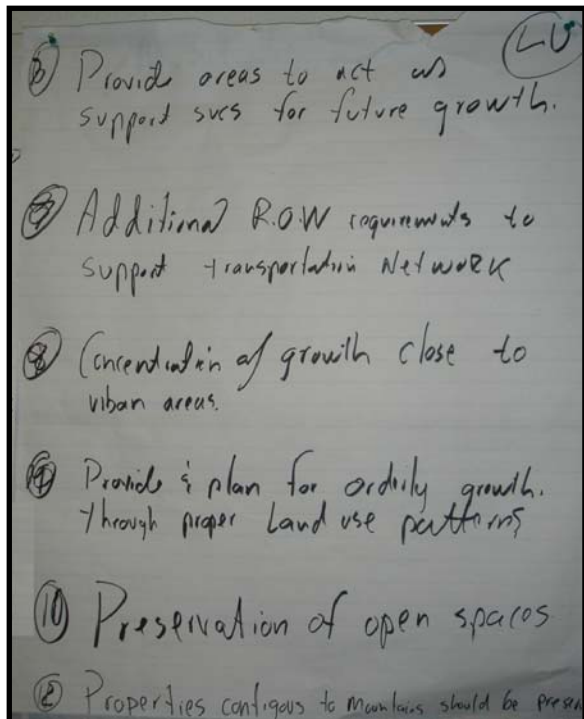 LU
⑥ Provide areas to act as
support svcs for future growth.
⑦ Additional R.O.W requirements to
support transportation NetwoRK
⑧ Concentration of growth close to
urban areas.
⑨ Provide & plan for orderly growth.
through proper Land use patterns
⑩ Preservation of open spaces
Properties contigous to mountains should be